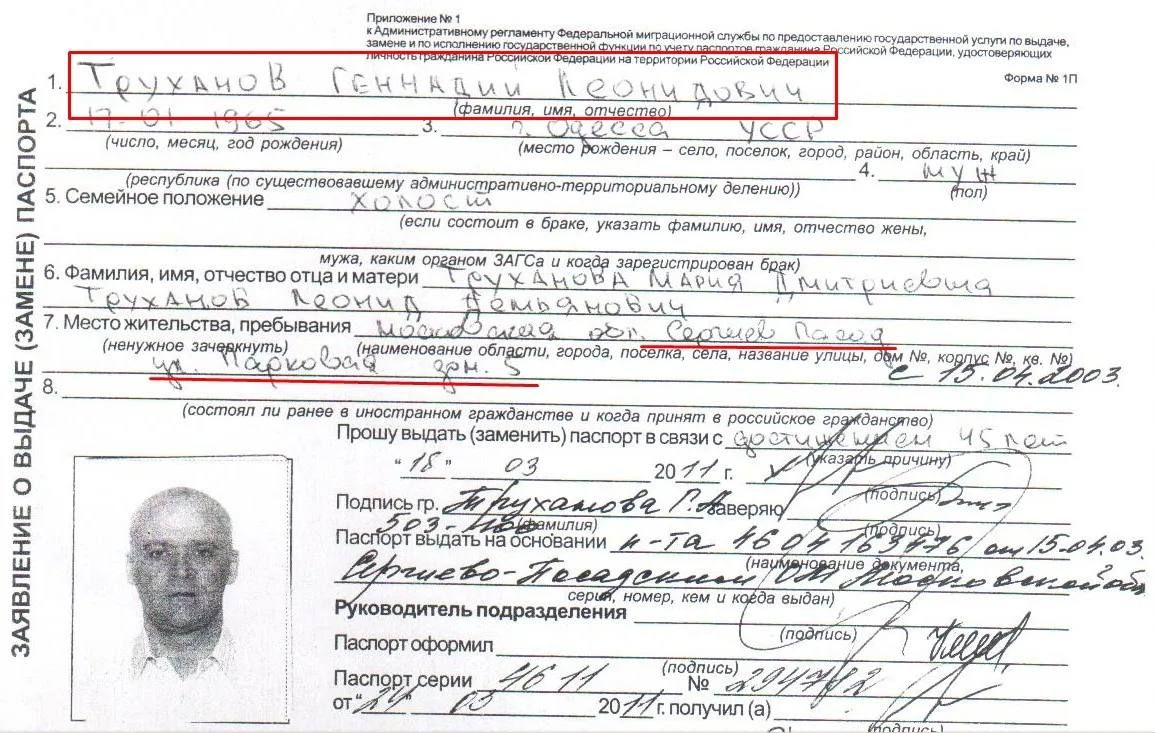 Приложение № 1
к Административному регламенту Федеральной миграционной службы по предоставлению государственной услуги по выдаче,
замене и по исполнению государственной функции по учету паспортов гражданина Российской Федерации, удостоверяющих
личность гражданина Российской Федерации на территории Российской Федерации
Форма № 1П
ЗАЯВЛЕНИЕ О ВЫДАЧЕ (ЗАМЕНЕ) ПАСПОРТА
1. Труханов Геннадий Леонидович
(фамилия, имя, отчество)
2. 17-01 1965 3. г. Одесса УССР
(число, месяц, год рождения) (место рождения – село, поселок, город, район, область, край)
4. муж
(республика (по существовавшему административно-территориальному делению)) (пол)
5. Семейное положение холост
(если состоит в браке, указать фамилию, имя, отчество жены,
мужа, каким органом ЗАГСа и когда зарегистрирован брак)
6. Фамилия, имя, отчество отца и матери Труханова Мария Дмитриевна
Труханов Леонид Демьянович
7. Место жительства, пребывания московская обл. Сергиев Посад
(ненужное зачеркнуть) (наименование области, города, поселка, села, название улицы, дом №, корпус №, кв. №)
ул. Парковая дом. 5 с 15.04.2003.
8.
(состоял ли ранее в иностранном гражданстве и когда принят в российское гражданство)
Прошу выдать (заменить) паспорт в связи с достижением 45 лет
(указать причину)
"18" 03 2011 г.
(подпись)
Подпись гр. Труханова Г.Л. заверяю
(фамилия) (подпись)
Паспорт выдать на основании п-та 4604 163476 от 15.04.03.
(наименование документа,
Сергиево-Посадским ОМ Московской обл
серия, номер, кем и когда выдан)
Руководитель подразделения
(подпись)
Паспорт оформил
(подпись)
Паспорт серии 4611 № 294782
от "24" 03 2011 г. получил (а)
(подпись)